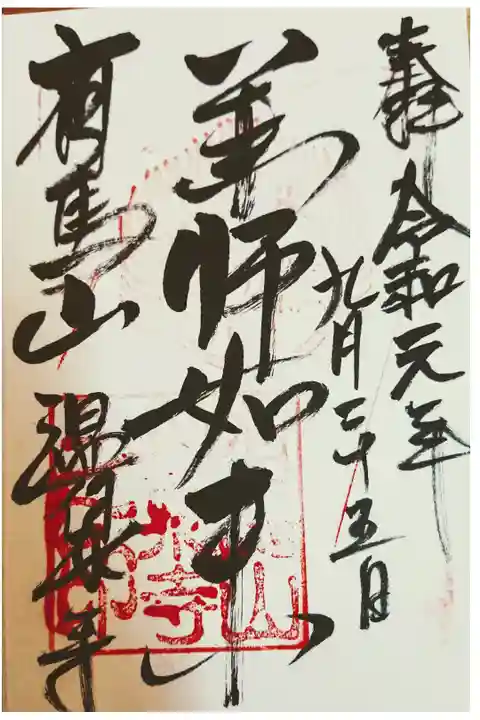 奉拝
令和元年
九月二十五日
薬師如来
有馬山 温泉寺